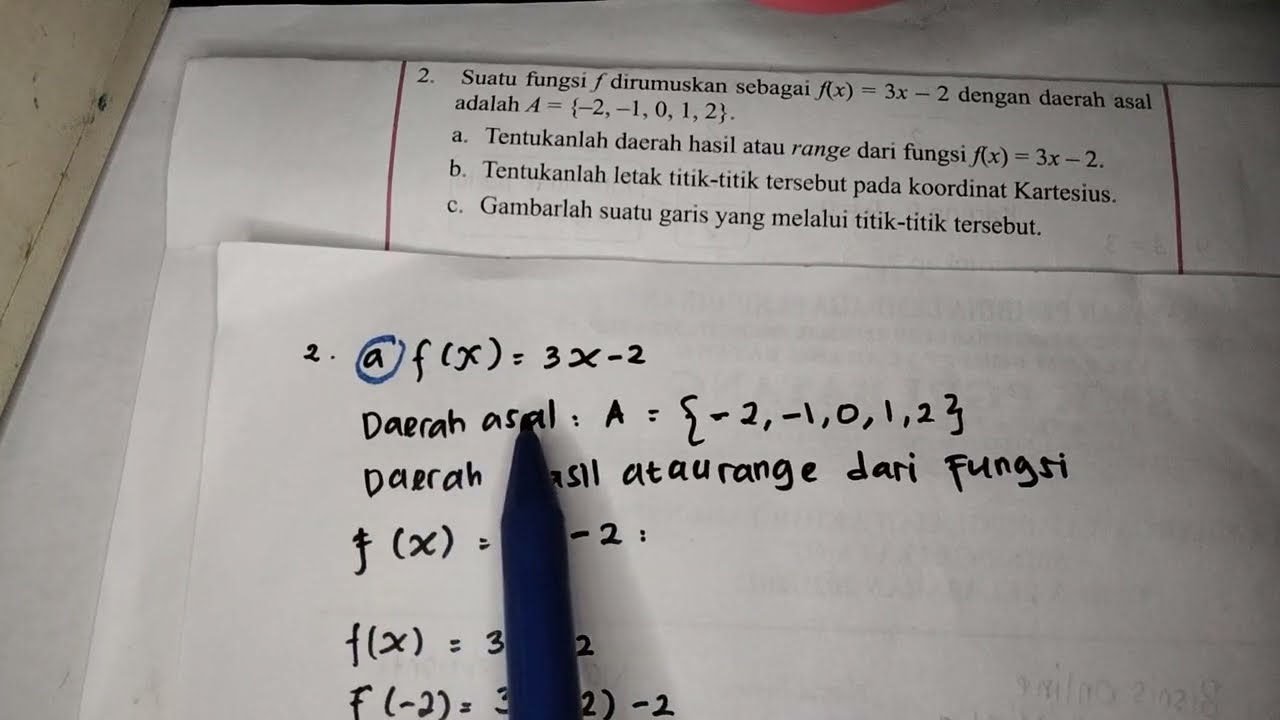 2. Suatu fungsi f dirumuskan sebagai f(x) = 3x – 2 dengan daerah asal
adalah A = {–2, –1, 0, 1, 2}.
a. Tentukanlah daerah hasil atau range dari fungsi f(x) = 3x – 2.
b. Tentukanlah letak titik-titik tersebut pada koordinat Kartesius.
c. Gambarlah suatu garis yang melalui titik-titik tersebut.
2. a f(x) = 3x - 2
Daerah asal : A = {-2, -1, 0, 1, 2}
Daerah asil atau range dari Fungsi
f (x) = - 2 :
f(x) = 3 2
F (-2) = 3 2) - 2